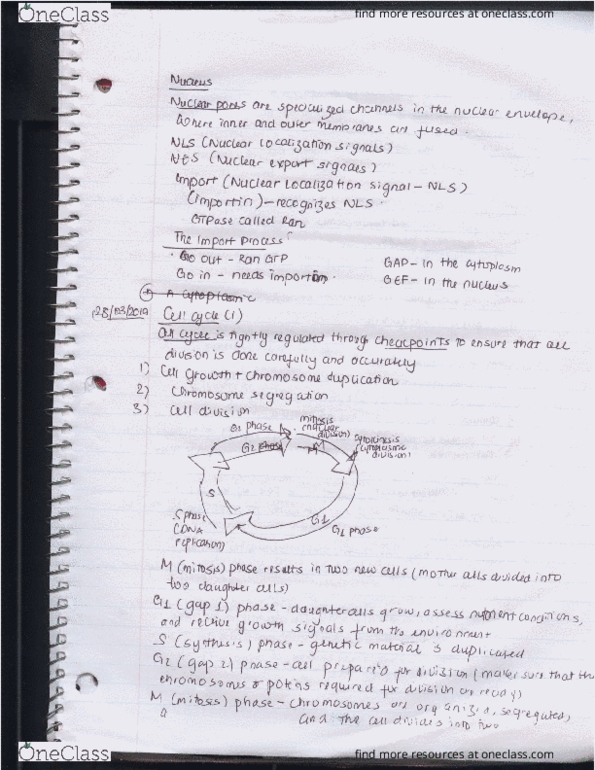 OneClass
find more resources at oneclass.com
Nucleus
Nuclear pores are specialized channels in the nuclear envelope,
where inner and outer membranes are fused.
NLS (Nuclear Localization signals)
NES (Nuclear export signals)
Import (Nuclear Localization signal - NLS)
(importin) - recognizes NLS.
GTPase called Ran
The Import Process
Go out - Ran GTP
GAP - in the cytoplasm
Go in - needs importin.
GEF - in the nucleus
A Cytoplasmic
28/03/2019 Cell cycle (1)
Cell cycle is tightly regulated through checkpoints to ensure that all
division is done carefully and accurately
1) Cell growth + chromosome duplication
2) Chromosome segregation
3) Cell division
G2 phase
mitosis
(nuclear
division)
G2 phase
M
cytokinesis
(cytoplasmic
division)
S
S phase
(DNA
replication)
G1
G1 phase
M (mitosis) phase results in two new cells (mother cells divided into
two daughter cells)
G1 (gap 1) phase - daughter cells grow, assess nutrient conditions,
and receive growth signals from the environment
S (sythesis) phase - genetic material is duplicated
G2 (gap 2) phase - cell prepares for division (makes sure that the
chromosomes & proteins required for division are ready)
M (mitosis) phase - chromosomes are organized, segregated,
and the cell divides into two
OneClass
find more resources at oneclass.com